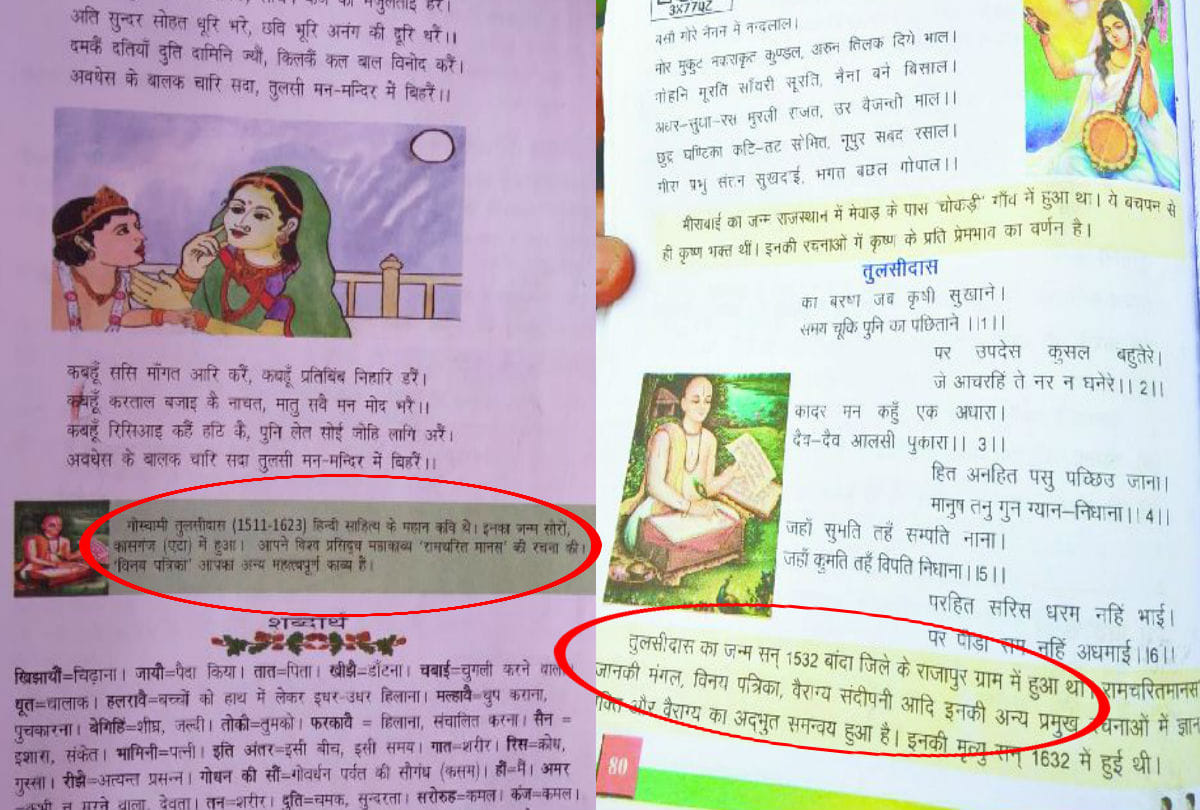 अति सुन्दर सोहत धूरि भरे, छवि भूरि अनंग की दूरि धरैं।।
दमकैं दतियाँ दुति दामिनि ज्यौं, किलकैं कल बाल विनोद करैं।
अवधेस के बालक चारि सदा, तुलसी मन-मन्दिर में बिहरैं।।
कबहूँ ससि माँगत आरि करैं, कबहूँ प्रतिबिंब निहारि डरैं।
कबहूँ करताल बजाइ कै नाचत, मातु सबै मन मोद भरैं।।
कबहूँ रिसिआइ कहैं हठि कै, पुनि लेत सोई जेहि लागि अरैं।
अवधेस के बालक चारि सदा तुलसी मन-मन्दिर में बिहरैं।।
गोस्वामी तुलसीदास (1511-1623) हिन्दी साहित्य के महान कवि थे। इनका जन्म सोरों,
कासगंज (एटा) में हुआ। आपने विश्व प्रसिद्ध महाकाव्य 'रामचरित मानस' की रचना की।
'विनय पत्रिका' आपका अन्य महत्त्वपूर्ण काव्य है।
शब्दार्थ
खिझायौ=चिढ़ाना। जायौ=पैदा किया। तात=पिता। खीझै=डाँटना। चबाई=चुगली करने वाला,
धूत=चालाक। हलरावै=बच्चों को हाथ में लेकर इधर-उधर हिलाना। मल्हावै=चुप कराना,
पुचकारना। बेगिहिं=शीघ्र, जल्दी। तोकौ=तुमको। फरकावै = हिलाना, संचालित करना। सैन =
इशारा, संकेत। भामिनी=पत्नी। इति अंतर=इसी बीच, इसी समय। गात=शरीर। रिस=क्रोध,
गुस्सा। रीझै=अत्यन्त प्रसन्न। गोधन की सौं=गोवर्धन पर्वत की सौगंध (कसम)। हौं=मैं। अमर
=कभी न मरने वाला, देवता। तन=शरीर। दुति=चमक, सुन्दरता। सरोरुह=कमल। कंज=कमल।
3X77QZ
बसौ मोरे नैनन में नन्दलाल।
मोर मुकुट मकराकृत कुण्डल, अरुन तिलक दिये भाल।
मोहनि मूरति साँवरी सूरति, नैना बने बिसाल।
अधर-सुधा-रस मुरली राजत, उर वैजन्ती माल।।
छुद्र घण्टिका कटि-तट सोभित, नूपुर सबद रसाल।
मीरा प्रभु संतन सुखदाई, भगत बछल गोपाल।।
मीराबाई का जन्म राजस्थान में मेवाड़ के पास 'चोकड़ी' गाँव में हुआ था। ये बचपन से
ही कृष्ण भक्त थीं। इनकी रचनाओं में कृष्ण के प्रति प्रेमभाव का वर्णन है।
तुलसीदास
का बरषा जब कृषी सुखाने।
समय चूकि पुनि का पछिताने ।।1।।
पर उपदेस कुसल बहुतेरे।
जे आचरहिं ते नर न घनेरे।। 2।।
कादर मन कहुँ एक अधारा।
दैव-दैव आलसी पुकारा।। 3।।
हित अनहित पसु पच्छिउ जाना।
मानुष तनु गुन ग्यान-निधाना।। 4।।
जहाँ सुमति तहँ सम्पति नाना।
जहाँ कुमति तहँ विपति निधाना।।5।।
परहित सरिस धरम नहिं भाई।
पर पीड़ा सम नहिं अधमाई।।6।।
तुलसीदास का जन्म सन् 1532 बांदा जिले के राजापुर ग्राम में हुआ था। रामचरितमानस
जानकी मंगल, विनय पत्रिका, वैराग्य संदीपनी आदि इनकी अन्य प्रमुख रचनाओं में ज्ञान
और वैराग्य का अद्भुत समन्वय हुआ है। इनकी मृत्यु सन् 1632 में हुई थी।
80